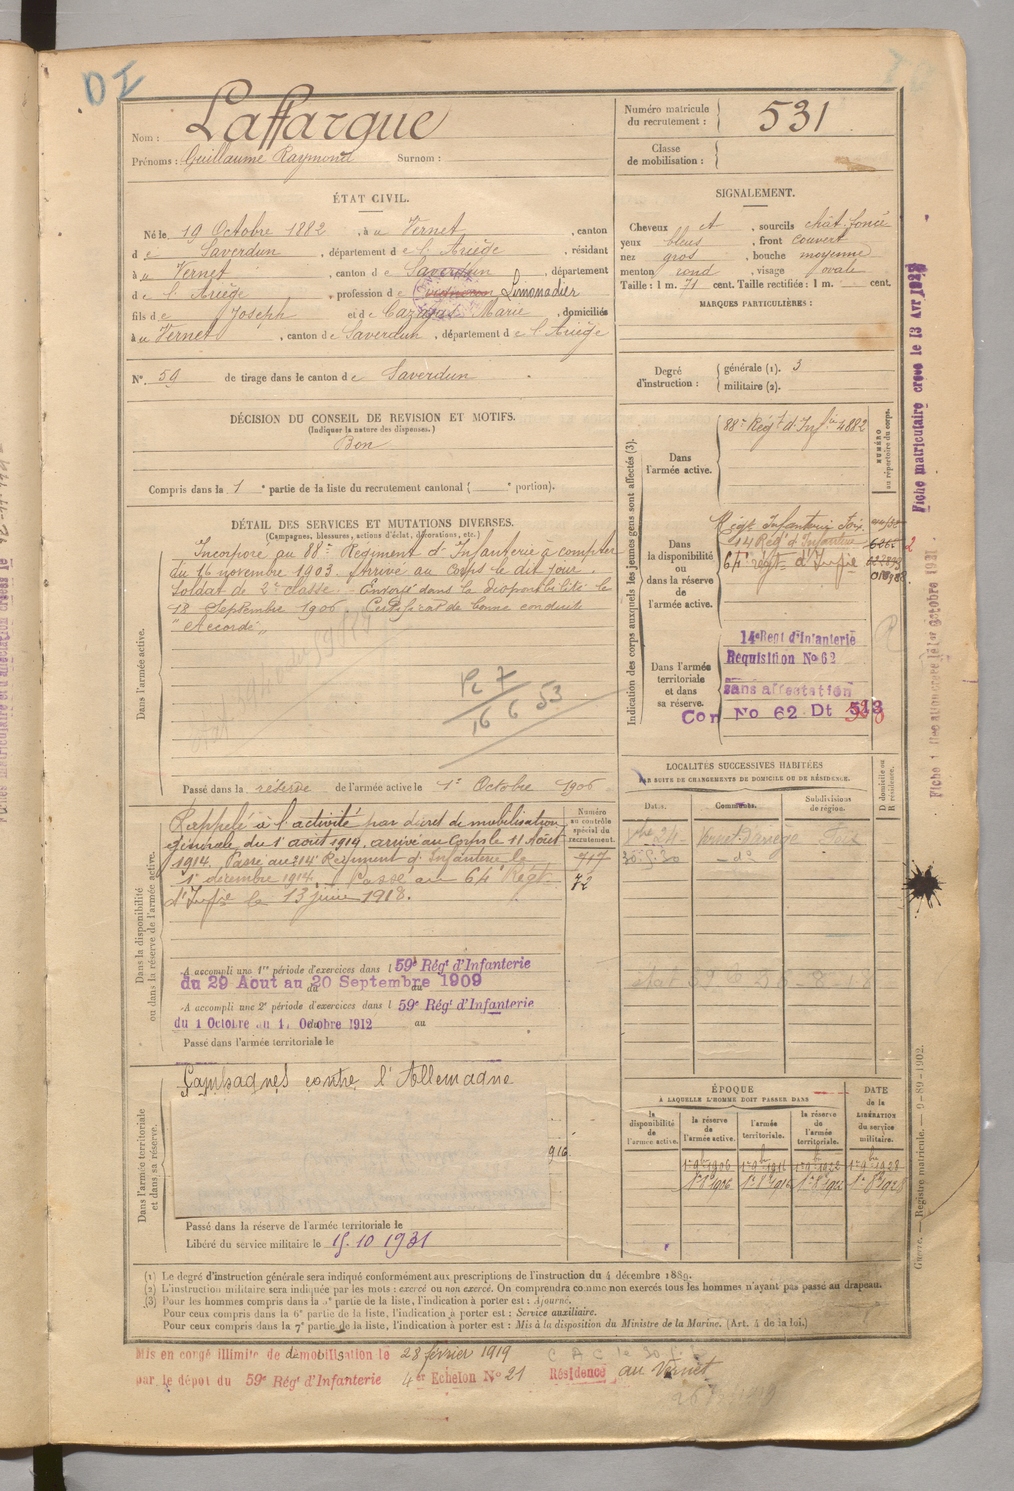 DI
Nom : Laffargue
Prénoms : Guillaume Raymond Surnom :
Numéro matricule du recrutement : 531
Classe de mobilisation :
ÉTAT CIVIL.
Né le 19 Octobre 1882, à u Vernet, canton
d e Saverdun, département d e l'Ariège, résidant
à u Vernet, canton d e Saverdun, département
d e l'Ariège, profession d e Limonadier
fils d e Joseph et d e Marie, domiciliés
à u Vernet, canton d e Saverdun, département d e l'Ariège
N° 59 de tirage dans le canton d e Saverdun
SIGNALEMENT.
Cheveux et, sourcils chât. foncé
yeux bleus, front couvert
nez gros, bouche moyenne
menton rond, visage ovale
Taille : 1 m. 71 cent. Taille rectifiée : 1 m. cent.
MARQUES PARTICULIÈRES :
Degré d'instruction : générale (1). 3
militaire (2).
DÉCISION DU CONSEIL DE REVISION ET MOTIFS.
(Indiquer la nature des dispenses.)
Bon
Compris dans la 1e partie de la liste du recrutement cantonal ( e portion).
DÉTAIL DES SERVICES ET MUTATIONS DIVERSES.
(Campagnes, blessures, actions d'éclat, décorations, etc.)
Dans l'armée active.
Incorporé au 88e Régiment d'Infanterie à compter
du 16 novembre 1903. Arrivé au Corps le dit jour.
Soldat de 2e classe. Envoyé dans la disponibilité le
18 Septembre 1906. Certificat de bonne conduite
"Accordé"
16 6 53
Passé dans la réserve de l'armée active le 1er Octobre 1906
Indication des corps auxquels les jeunes gens sont affectés (3).
Dans l'armée active.
88e Régt d'Infie 4882
NUMÉRO au répertoire du corps.
Dans la disponibilité ou dans la réserve de l'armée active.
Régt Infanterie Foix
14 Régt d'Infanterie
64e régt d'Infie
Dans l'armée territoriale et dans sa réserve.
14e Regt d'Infanterie
Requisition No 62
Sans affectation
Con No 62 Dt 513
Dans la disponibilité ou dans la réserve de l'armée active.
Numéro au contrôle spécial du recrutement.
Rappelé à l'activité par décret de mobilisation
générale du 1er août 1914, arrivé au Corps le 11 Août
1914. Passé au 214e Régiment d'Infanterie le
1er décembre 1914. Passé au 64e Régt
d'Infie le 13 juin 1918.
717
72
A accompli une 1re période d'exercices dans l 59e Régt d'Infanterie
du 29 Aout au 20 Septembre 1909
A accompli une 2e période d'exercices dans l 59e Régt d'Infanterie
du 1 Octobre au Octobre 1912
Passé dans l'armée territoriale le
LOCALITÉS SUCCESSIVES HABITÉES
PAR SUITE DE CHANGEMENTS DE DOMICILE OU DE RÉSIDENCE.
Dates. Communes. Subdivisions de région. D domicile ou R résidence.
Vernet d'Ariège Foix
30.5.30 - d° -
Dans l'armée territoriale et dans sa réserve.
Campagnes contre l'Allemagne
916
Passé dans la réserve de l'armée territoriale le
Libéré du service militaire le 15.10 1931
ÉPOQUE
À LAQUELLE L'HOMME DOIT PASSER DANS
la disponibilité de l'armée active.
la réserve de l'armée active.
l'armée territoriale.
la réserve de l'armée territoriale.
DATE de la LIBÉRATION du service militaire.
(1) Le degré d'instruction générale sera indiqué conformément aux prescriptions de l'instruction du 4 décembre 1889.
(2) L'instruction militaire sera indiquée par les mots : exercé ou non exercé. On comprendra comme non exercés tous les hommes n'ayant pas passé au drapeau.
(3) Pour les hommes compris dans la 5e partie de la liste, l'indication à porter est : Ajourné.
Pour ceux compris dans la 6e partie de la liste, l'indication à porter est : Service auxiliaire.
Pour ceux compris dans la 7e partie de la liste, l'indication à porter est : Mis à la disposition du Ministre de la Marine. (Art. 4 de la loi.)
Mis en congé illimité de démobilisation le 28 février 1919
par le dépôt du 59e Régt d'Infanterie 4er Echelon No 21 Résidence au Vernet
Fiche matriculaire créée le 13 Avr
Guerre. — Registre matricule. — 9-89-1902.